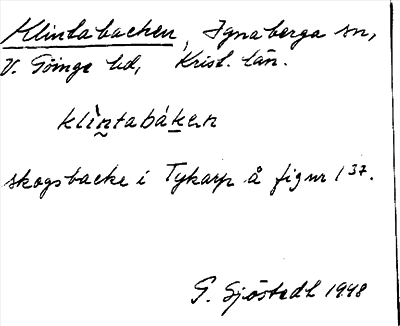 Klintabacken, Ignaberga sn,
V. Göinge hd, Krist. län.
klìntabáken
skogsbacke i Tykarp å figur 1 37.
G. Sjöstedt 1948